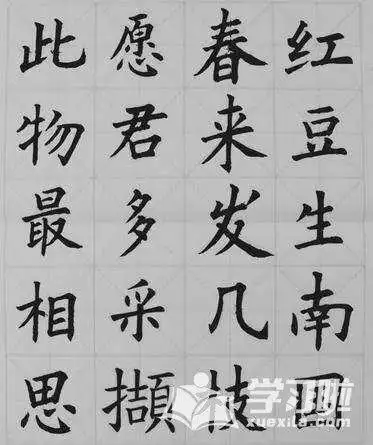 红豆生南国
春来发几枝
愿君多采撷
此物最相思
学习啦
xuexila.com